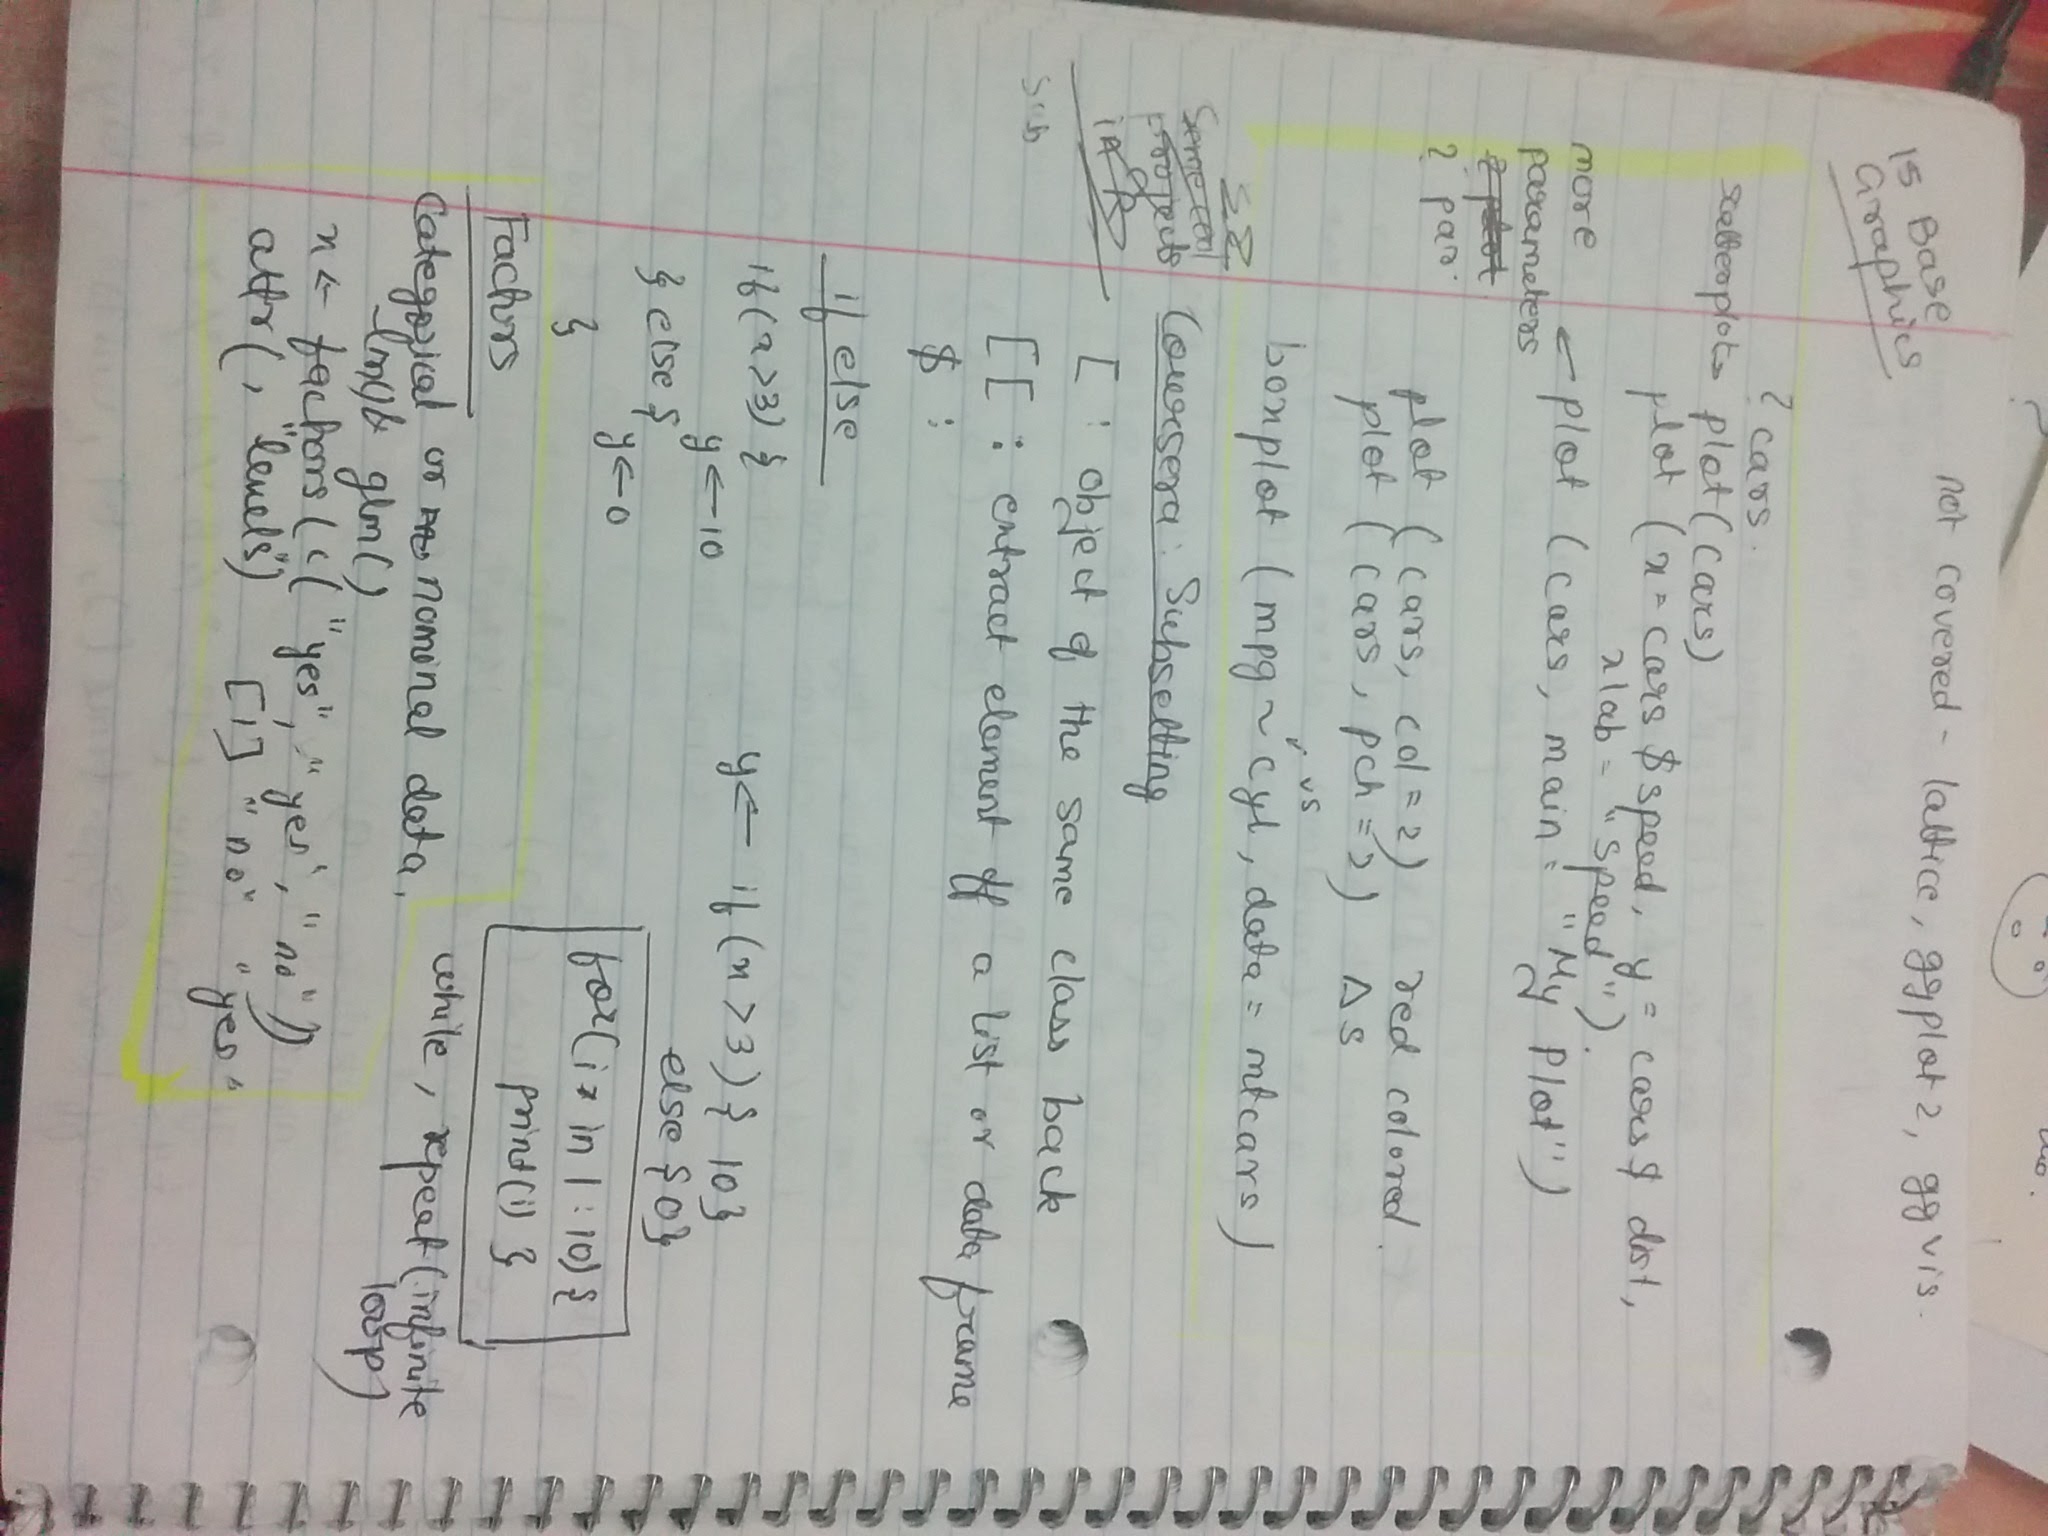 15 Base
Graphics
not covered - lattice, ggplot2, ggvis.
? cars.
scatterplots plot(cars)
plot (x = cars $ speed, y = cars $ dist,
xlab = "speed")
more
parameters
← plot (cars, main = "My Plot")
? par.
plot (cars, col = 2) red colored.
plot (cars, pch = 2) Δs
vs
boxplot (mpg ~ cyl, data = mtcars)
Coursera: Subsetting
[ : object of the same class back
[[ : extract element off a list or data frame
$ :
Sub
if else
if (x > 3) {
y ← 10
} else {
y ← 0
}
y ← if (x > 3) { 10}
else { 0}
for(i in 1:10) {
print(i) }
while, repeat (infinite
loop)
Factors
Categorical or nominal data,
lm() & glm()
x ← factors (c( "yes", "yes", "no"))
attr( , "levels") [1] "no" "yes"